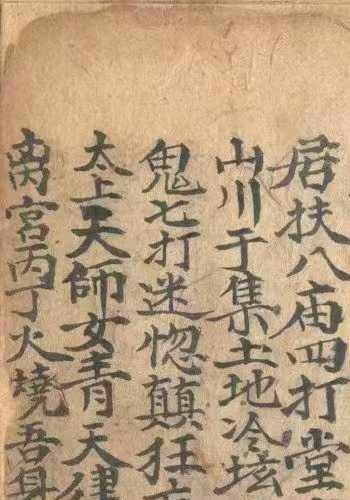 居扶八庙四打堂
山川于集土地冷坛
鬼七打迷惚颠狂
太上天師女青天律
离宮丙丁火燒吾身